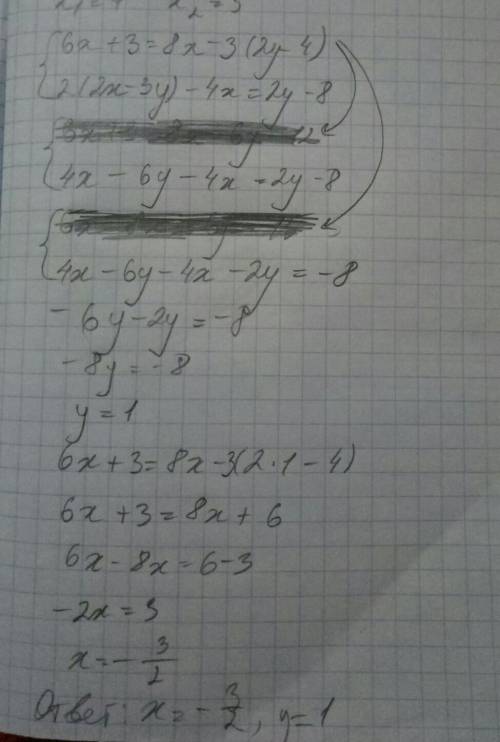 6x + 3 = 8x - 3(2y - 4)
2(2x - 3y) - 4x = 2y - 8
4x - 6y - 4x = 2y - 8
4x - 6y - 4x - 2y = -8
- 6y - 2y = -8
- 8y = -8
y = 1
6x + 3 = 8x - 3(2·1 - 4)
6x + 3 = 8x + 6
6x - 8x = 6 - 3
-2x = 3
x = - 3/2
Ответ: x = - 3/2, y = 1